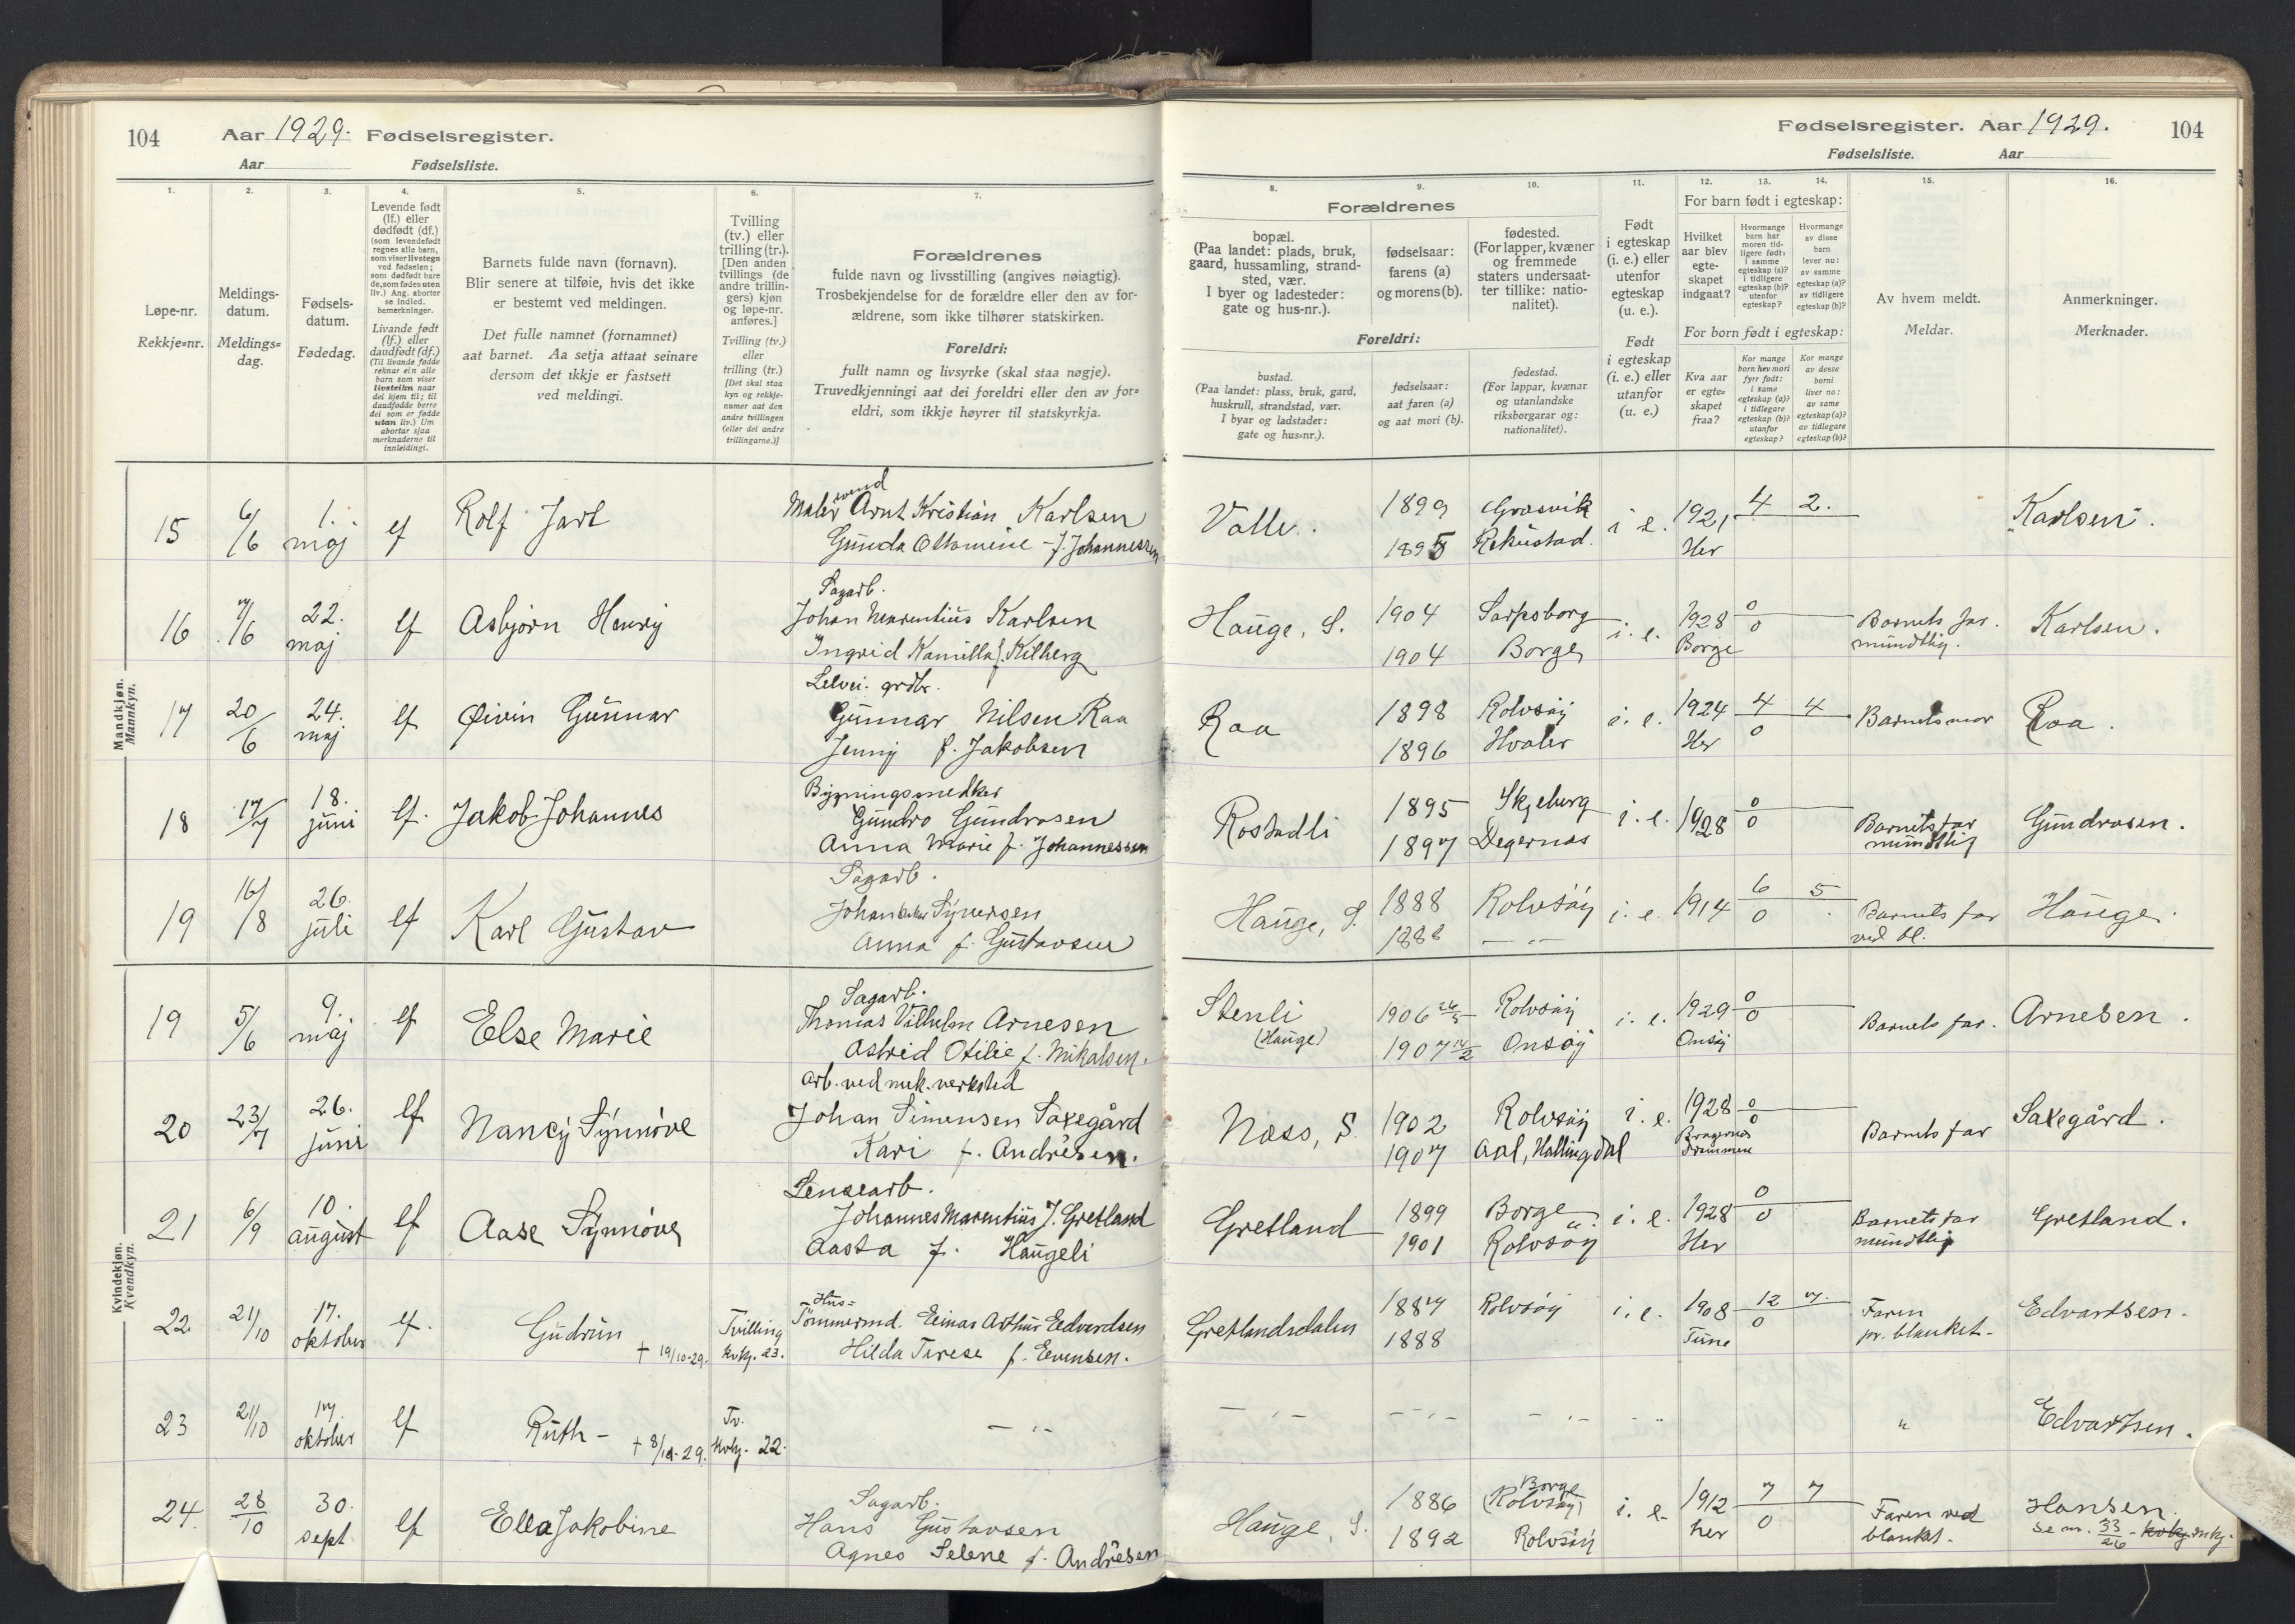 104 Aar 1929. Fødselsregister.
Aar Fødselsliste.
1. 2. 3. 4. 5. 6. 7.
Løpe-nr.
Rekkje-nr.
Meldings-
datum.
Meldings-
dag.
Fødsels-
datum.
Fødedag.
Levende født
(lf.) eller
dødfødt (df.)
(som levendefødt
regnes alle barn,
som viser livstegn
ved fødselen;
som dødfødt bare
de, som fødes uten
liv.) Ang. aborter
se indled.
bemerkninger.
Livande født
(lf.) eller
daudfødt (df.)
(Til livande fødde
reknar ein alle
barn som viser
livsteikn naar
dei kjem til; til
daudfødde berre
dei som er fødde
utan liv.) Um
abortar sjaa
merknaderne til
innleidingi.
Barnets fulde navn (fornavn).
Blir senere at tilføie, hvis det ikke
er bestemt ved meldingen.
Det fulle namnet (fornamnet)
aat barnet. Aa setja attaat seinare
dersom det ikkje er fastsett
ved meldingi.
Tvilling
(tv.) eller
trilling (tr.).
[Den anden
tvillings (de
andre trillin-
gers) kjøn
og løpe-nr.
anføres.]
Tvilling (tv.)
eller
trilling (tr.)
[Det skal staa
kyn og rekkje-
numer aat den
andre tvillingen
(eller dei andre
trillingarne.)]
Forældrenes
fulde navn og livsstilling (angives nøiagtig).
Trosbekjendelse for de forældre eller den av for-
ældrene, som ikke tilhører statskirken.
Foreldri:
fullt namn og livsyrke (skal staa nøgje).
Truvedkjenningi aat dei foreldri eller den av for-
eldri, som ikkje høyrer til statskyrkja.
Fødselsregister. Aar 1929. 104
Fødselsliste. Aar
8. 9. 10. 11. 12. 13. 14. 15. 16.
Forældrenes
bopæl.
(Paa landet: plads, bruk,
gaard, hussamling, strand-
sted, vær.
I byer og ladesteder:
gate og hus-nr.).
fødselsaar:
farens (a)
og morens (b).
fødested.
(For lapper, kvæner
og fremmede
staters undersaat-
ter tillike: natio-
nalitet).
Foreldri:
bustad.
(Paa landet: plass, bruk, gard,
huskrull, strandstad, vær.
I byar og ladstader:
gate og hus-nr.).
fødselsaar:
aat faren (a)
og aat mori (b).
fødestad.
(For lappar, kvænar
og utanlandske
riksborgarar og:
nationalitet).
Født
i egteskap
(i. e.) eller
utenfor
egteskap
(u. e.).
Født
i egteskap
(i. e.) eller
utanfor
egteskap
(u. e.)
For barn født i egteskap:
Hvilket
aar blev
egte-
skapet
indgaat?
Hvormange
barn har
moren tid-
ligere født:
i samme
egteskap (a)?
i tidligere
egteskap (b)?
utenfor
egteskap?
Hvormange
av disse
barn
lever nu:
av samme
egteskap (a)?
av tidligere
egteskap (b)?
For born født i egteskap:
Kva aar
er egte-
skapet
fraa?
Kor mange
born hev mori
fyrr født:
i same
egteskap (a)?
i tidlegare
egteskap (b)?
utanfor
egteskap?
Kor mange
av desse
borni
liver no:
av same
egteskap (a)?
av tidlegare
egteskap (b)?
Av hvem meldt.
Meldar.
Anmerkninger.
Merknader.
Mandkjøn.
Mannkyn.
15 6/6 1. maj lf Rolf Jarl
Malersvend Arnt Kristian Karlsen
Gunda Ottomine f. Johannessen
Valle. 1899 Græsvik i e. 1921 4 2. "Karlsen".
1895 Rekustad. Her
16 7/6 22. maj lf Asbjørn Henry
Sagarb.
Johan Marentius Karlsen
Ingrid Kamilla f. Kilberg
Hauge, S. 1904 Sarpsborg i. e. 1928 0 Barnets far. Karlsen.
1904 Borge Borge 0 mundtlig.
17 20/6 24. maj lf Øivin Gunnar
Selvei. grdbr.
Gunnar Nilsen Raa
Jenny f. Jakobsen
Raa 1898 Rolvsøy i. e. 1924 4 4 Barnets mor Raa.
1896 Hvaler Her 0
18 17/7 18. juni lf. Jakob Johannes
Bygningssnedker
Gundro Gundrosen
Anna Marie f. Johannessen
Rostadli 1895 Skjeberg i. e. 1928 0 Barnets far Gundrosen.
1897 Degernes 0 mundtlig
19 16/8 26. juli lf Karl Gustav
Sagarb.
Johan Syversen
Anna f. Gustavsen
Hauge, S. 1888 Rolvsøy i. e. 1914 6 5 Barnets far Hauge.
1888 — " — 0 ved bl.
Kvindekjøn.
Kvendkyn.
19 5/6 9. maj lf Else Marie
Sagarb.
Thomas Vilhelm Arnesen
Astrid Otilie f. Mikalsen.
Stenli 1906 26/5 Rolvsøy i. e. 1929 0 Barnets far. Arnesen.
(Hauge) 1907 14/2 Onsøy Onsøy 0
20 23/7 26. juni lf Nancy Synnøve
Arb. ved mek. verksted
Johan Simensen Saxegård
Kari f. Andresen.
Næss, S. 1902 Rolvsøy i. e. 1928 0 Barnets far Saxegård.
1907 Aal, Hallingdal Bragernes 0
Drammen
21 6/9 10. august lf Aase Synnøve
Lensearb.
Johannes Marentius J. Gretland
Aasta f. Haugeli
Gretland 1899 Borge i. e. 1928 0 Barnets far Gretland.
1901 Rolvsøy Her 0 mundtlig
22 21/10 17. oktober lf. Gudrun + 19/10-29. Tvilling kvkj. 23.
Hus=
Tømmermd. Einar Arthur Edvardsen
Hilda Terese f. Evensen.
Gretlandsdalen 1887 Rolvsøy i. e. 1908 12 7. Faren Edvardsen.
1888 Tune 0 pr. blanket.
23 21/10 17. oktober lf Ruth - Tv. kvkj. 22.
— " —
Edvardsen.
24. 28/10 30. sept lf Ella Jakobine
Sagarb.
Hans Gustavsen
Agnes Selene f. Andresen
Hauge, S. 1886 Borge (Rolvsøy) i. e. 1912 7 7 Faren ved Hansen.
1892 Rolvsøy her 0 blanket. Se nr. 33/26 - kvkj. mkj.